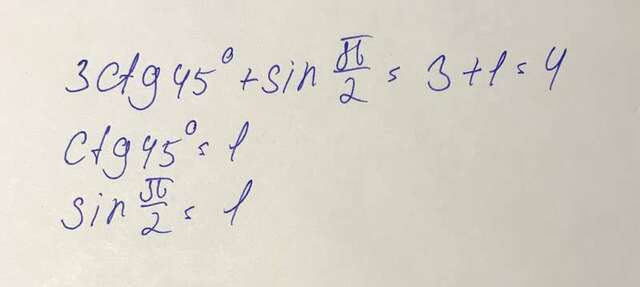 3ctg45° + sin π/2 = 3+1=4
ctg45° = 1
sin π/2 = 1